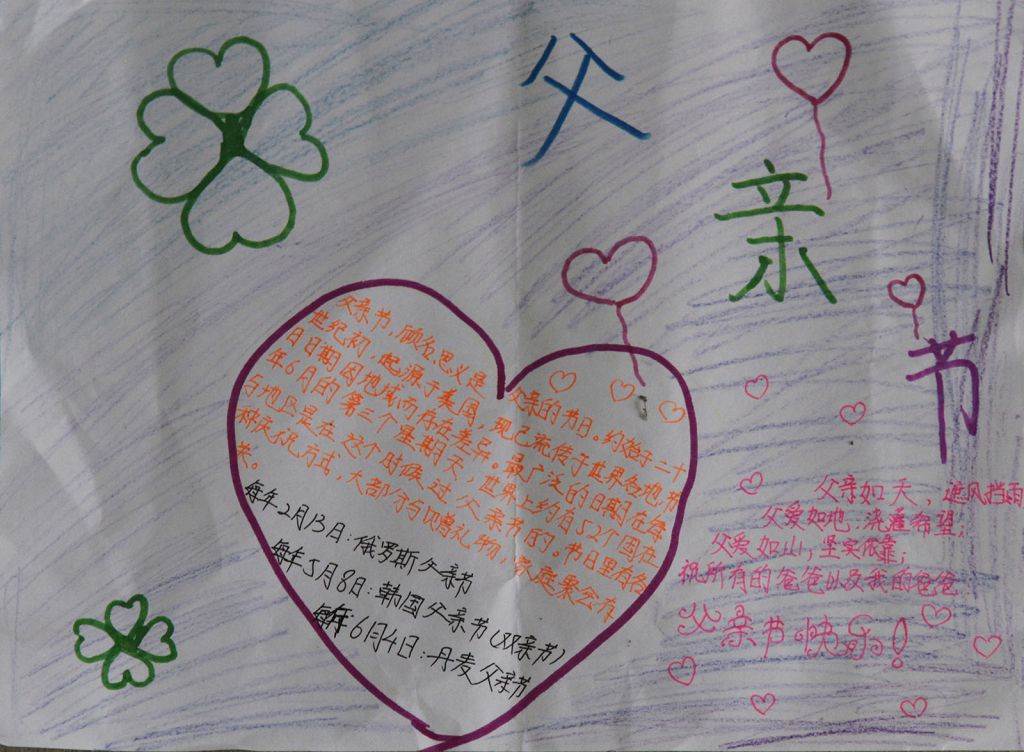 父
亲
节
父亲节，顾名思义是父亲的节日。约始于二十
世纪初，起源于美国，现已流传于世界各地，节
日日期因地域而存在差异。最广泛的日期在每
年6月的第三个星期天，世界上约有52个国家
与地区是在这个时候过父亲节的。节日里有各
种庆祝方式，大部分与赠礼物，家庭聚会有
关。
每年2月13日：俄罗斯父亲节
每年5月8日：韩国父亲节（双亲节）
每年6月4日：丹麦父亲节
父亲如天，遮风挡雨
父爱如地，浇灌希望，
父爱如山，坚实依靠；
祝所有的爸爸以及我的爸爸
父亲节快乐！